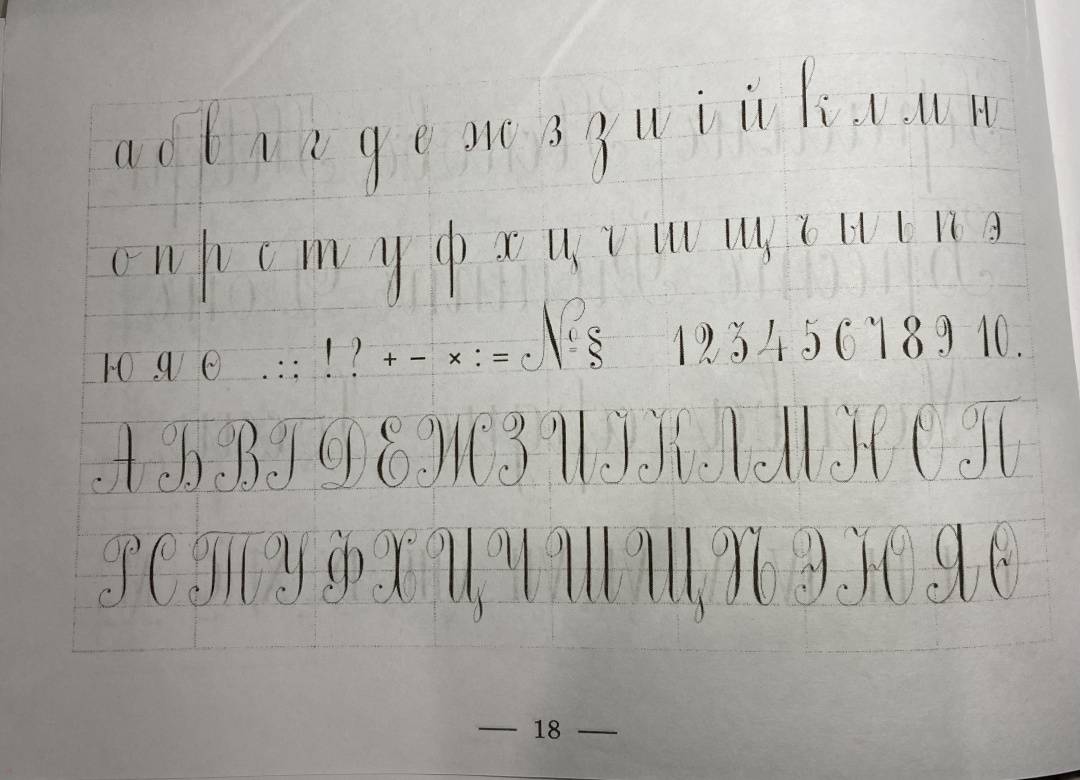 а б в г г д е ж з з и і й к л м н
о п р с т у ф х ц ч ш щ ъ ы ь ѣ э
ю я ѳ . : ; ! ? + − × : = № § 1 2 3 4 5 6 7 8 9 10.
А Б В Г Д Е Ж З И І К Л М Н О П
Р С Т У Ф Х Ц Ч Ш Щ Ѣ Э Ю Я Ѳ
— 18 —